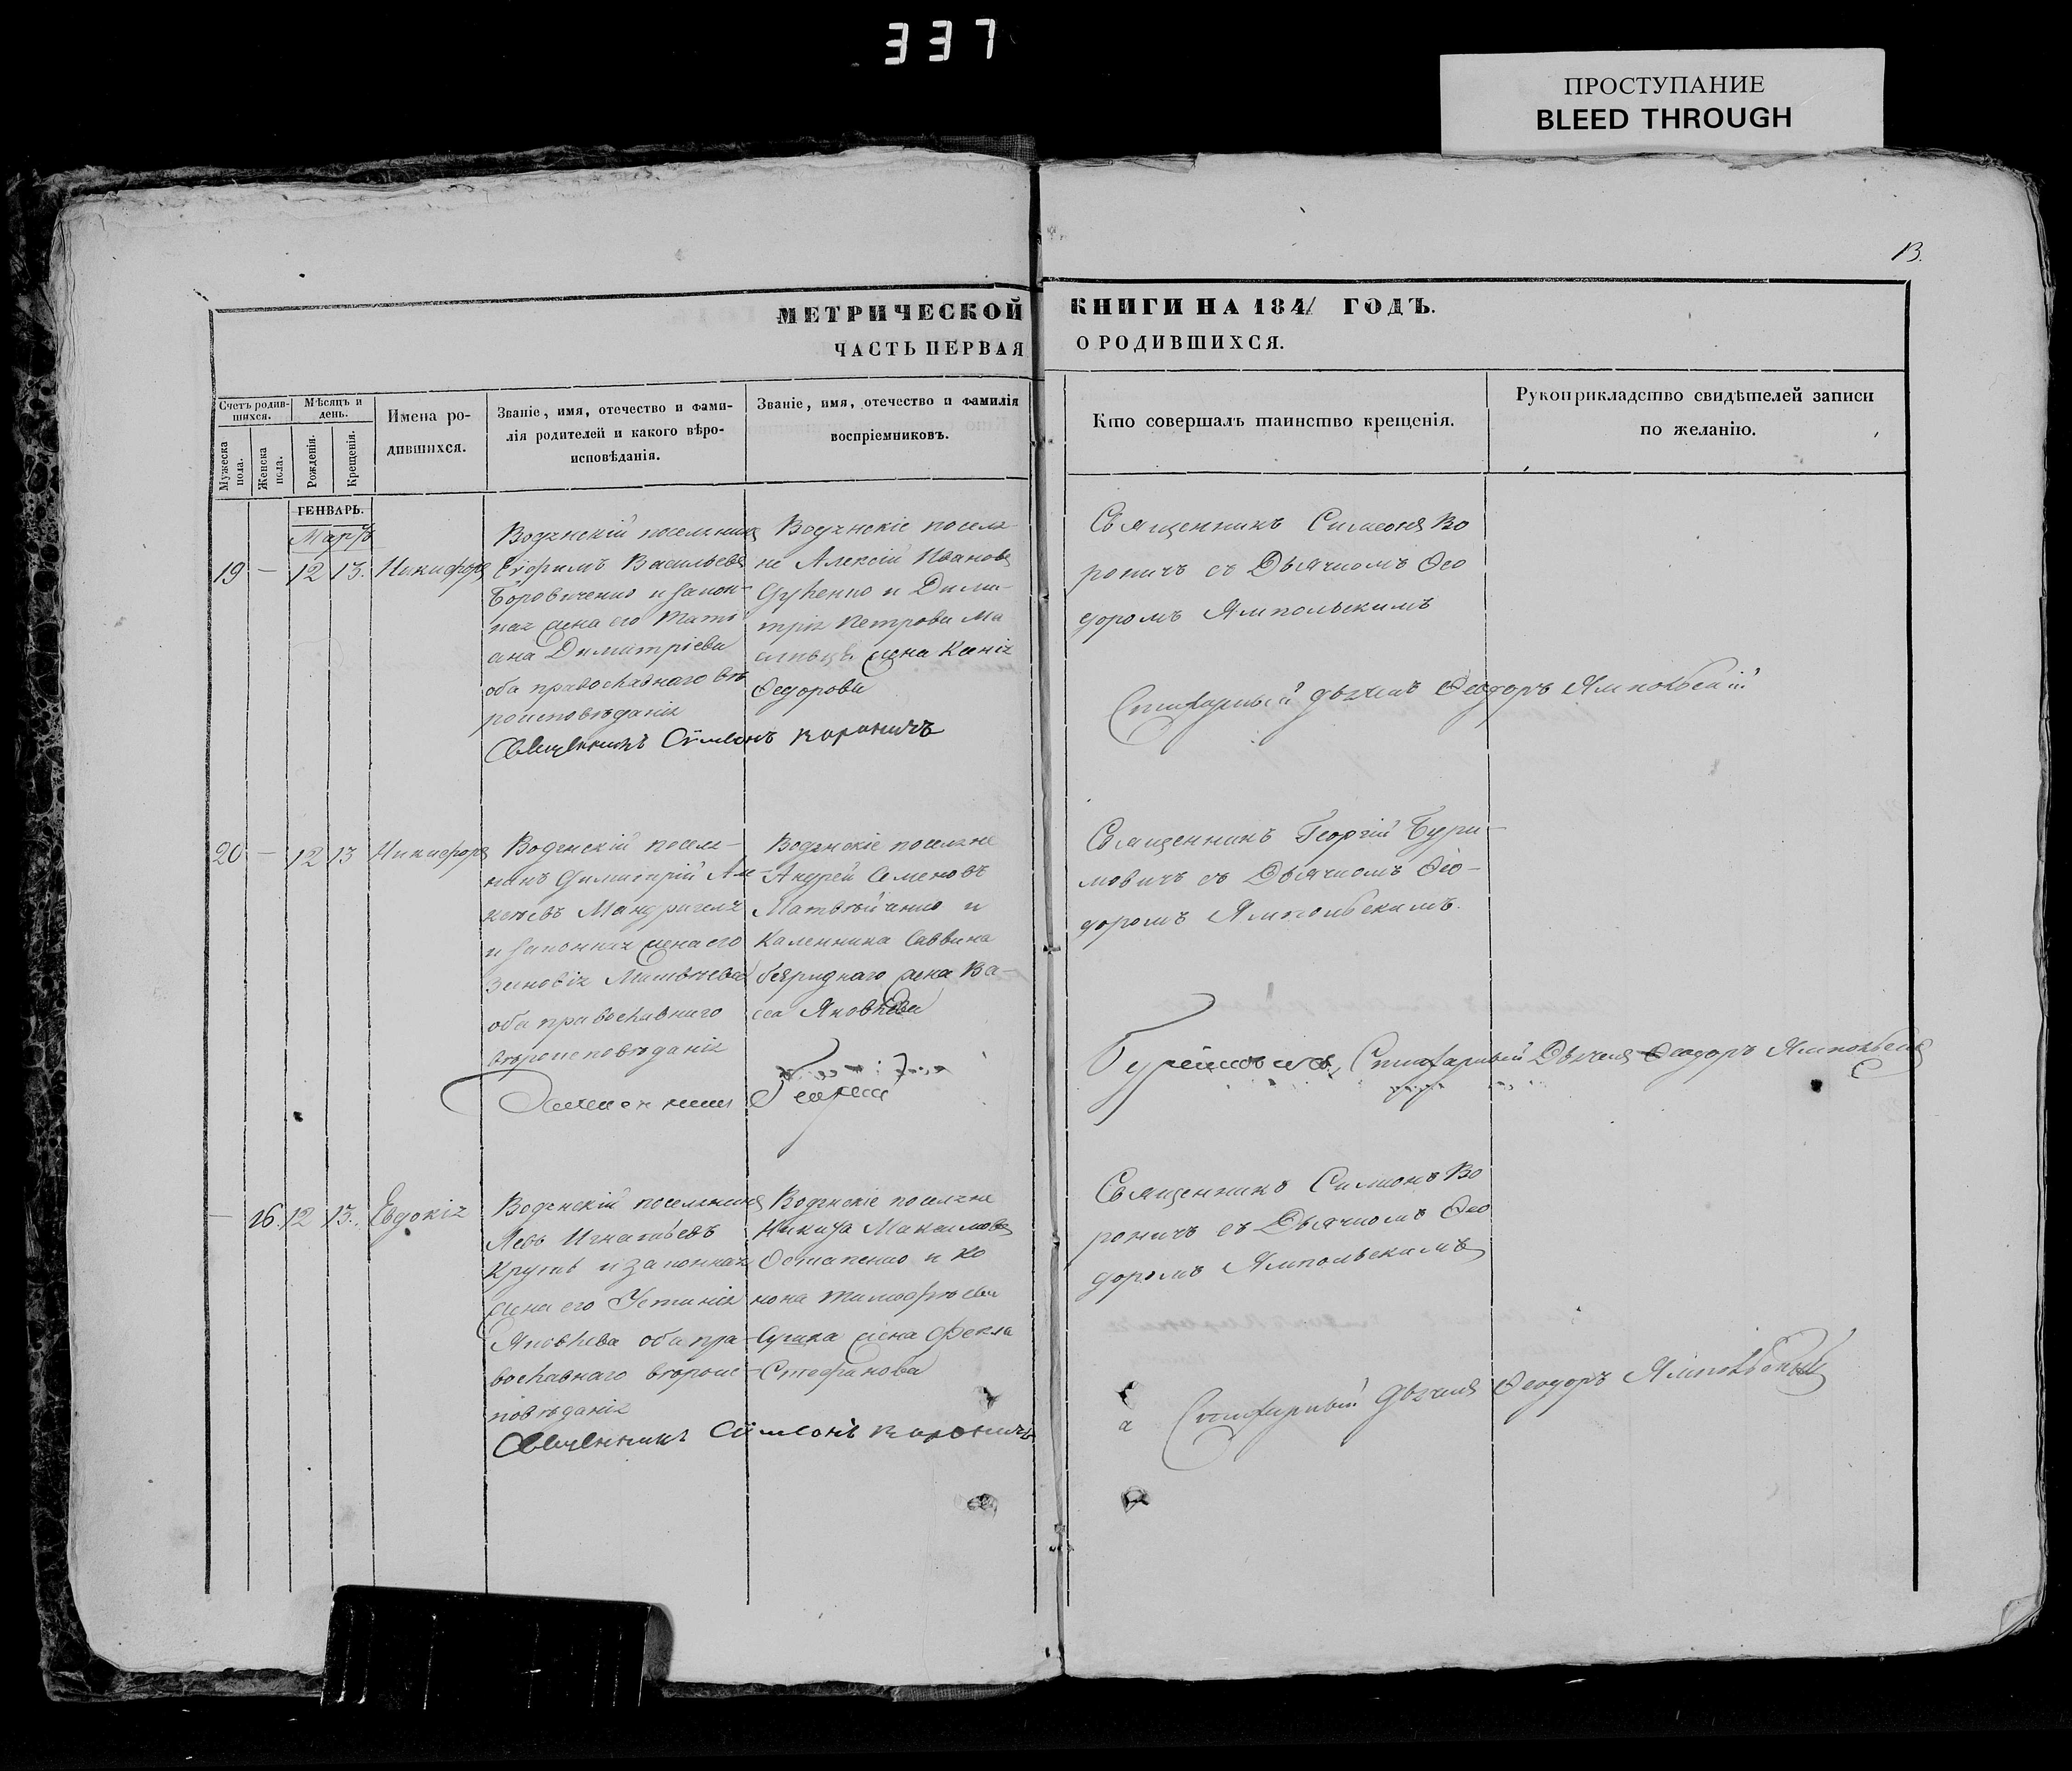 337
ПРОСТУПАНИЕ
BLEED THROUGH
13.
МЕТРИЧЕСКОЙ КНИГИ НА 1841 ГОДЪ.
ЧАСТЬ ПЕРВАЯ О РОДИВШИХСЯ.
Счетъ родив-
шихся.
Мужеска
пола.
Женска
пола.
Мѣсяцъ и
день.
Рожденія.
Крещенія.
Имена ро-
дившихся.
Званіе, имя, отечество и фами-
лія родителей и какого вѣро-
исповѣданія.
Званіе, имя, отечество и фамилія
воспріемниковъ.
Кто совершалъ таинство крещенія.
Рукоприкладство свидѣтелей записи
по желанію.
ГЕНВАРЬ.
Мартъ
19 — 12 13. Никифоръ
Военскій поселянинъ
Ефримъ Васильевъ
Боровиченко и закон-
ная жена его Тати
ана Димитріева
оба православнаго вѣ
роисповѣданія
Военскіе поселя
не Алексій Ивановъ
и Дими-
трія Петрова
жена Ксенія
Федорова
Священникъ Симеонъ Вороничъ
Священникъ Симеонъ Во
роничъ съ Дьячкомъ Ѳео
доромъ Ямпольскимъ
Стихарный дьячекъ Ѳеодоръ Ямпольскій
20 — 12 13 Никифоръ
Военскій поселя-
нинъ Димитрій
и законная жена его
Зиновія Матвѣева
оба православнаго
вѣроисповѣданія
Военскіе поселяне
Андрей Семеновъ
Матвѣйченко и
Каленника Саввина
жена Ва-
са Яковлева
Священникъ Георгій
Священникъ Георгій Бури-
мовичъ съ Дьячкомъ Ѳео-
доромъ Ямпольскимъ.
Буримовичъ, Стихарный Дьячекъ Ѳеодоръ Ямпольскій
— 16. 12 13. Евдокія
Военскій поселянинъ
Левъ Игнатьевъ
Крутъ и законная
жена его Устинія
Яковлева оба пра-
вославнаго вѣроис-
повѣданія
Военскіе поселяне
Никита Максимовъ
Остапенко и Ко
нона Тимофѣева
жена Фекла
Стефанова
Священникъ Симеонъ Вороничъ
Священникъ Симионъ Во
роничъ съ Дьячкомъ Ѳео
доромъ Ямпольскимъ
Стихарный Дьячекъ Ѳеодоръ Ямпольскій